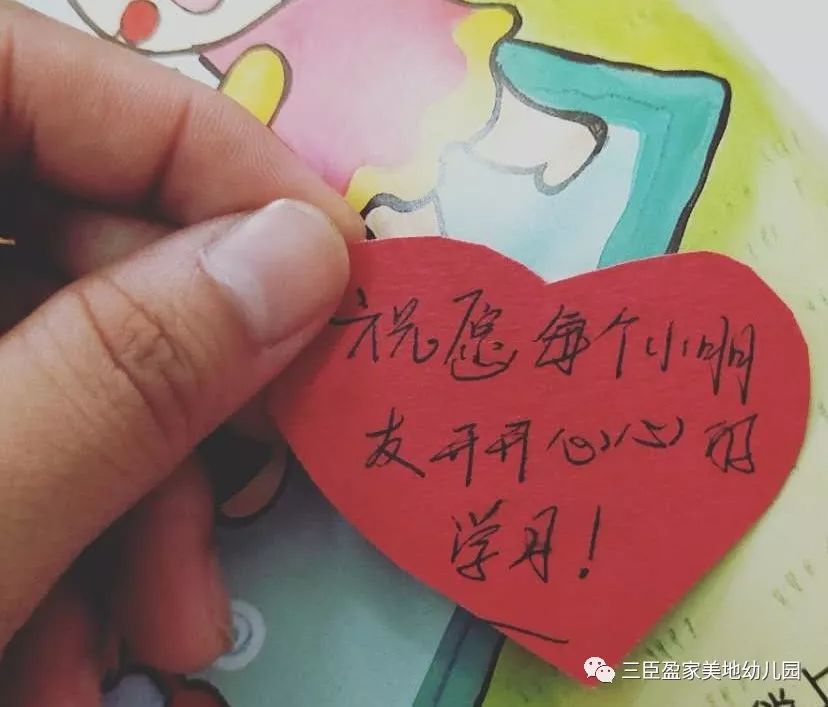 祝愿每个小朋
友开开心心的
学习!
三臣盈家美地幼儿园